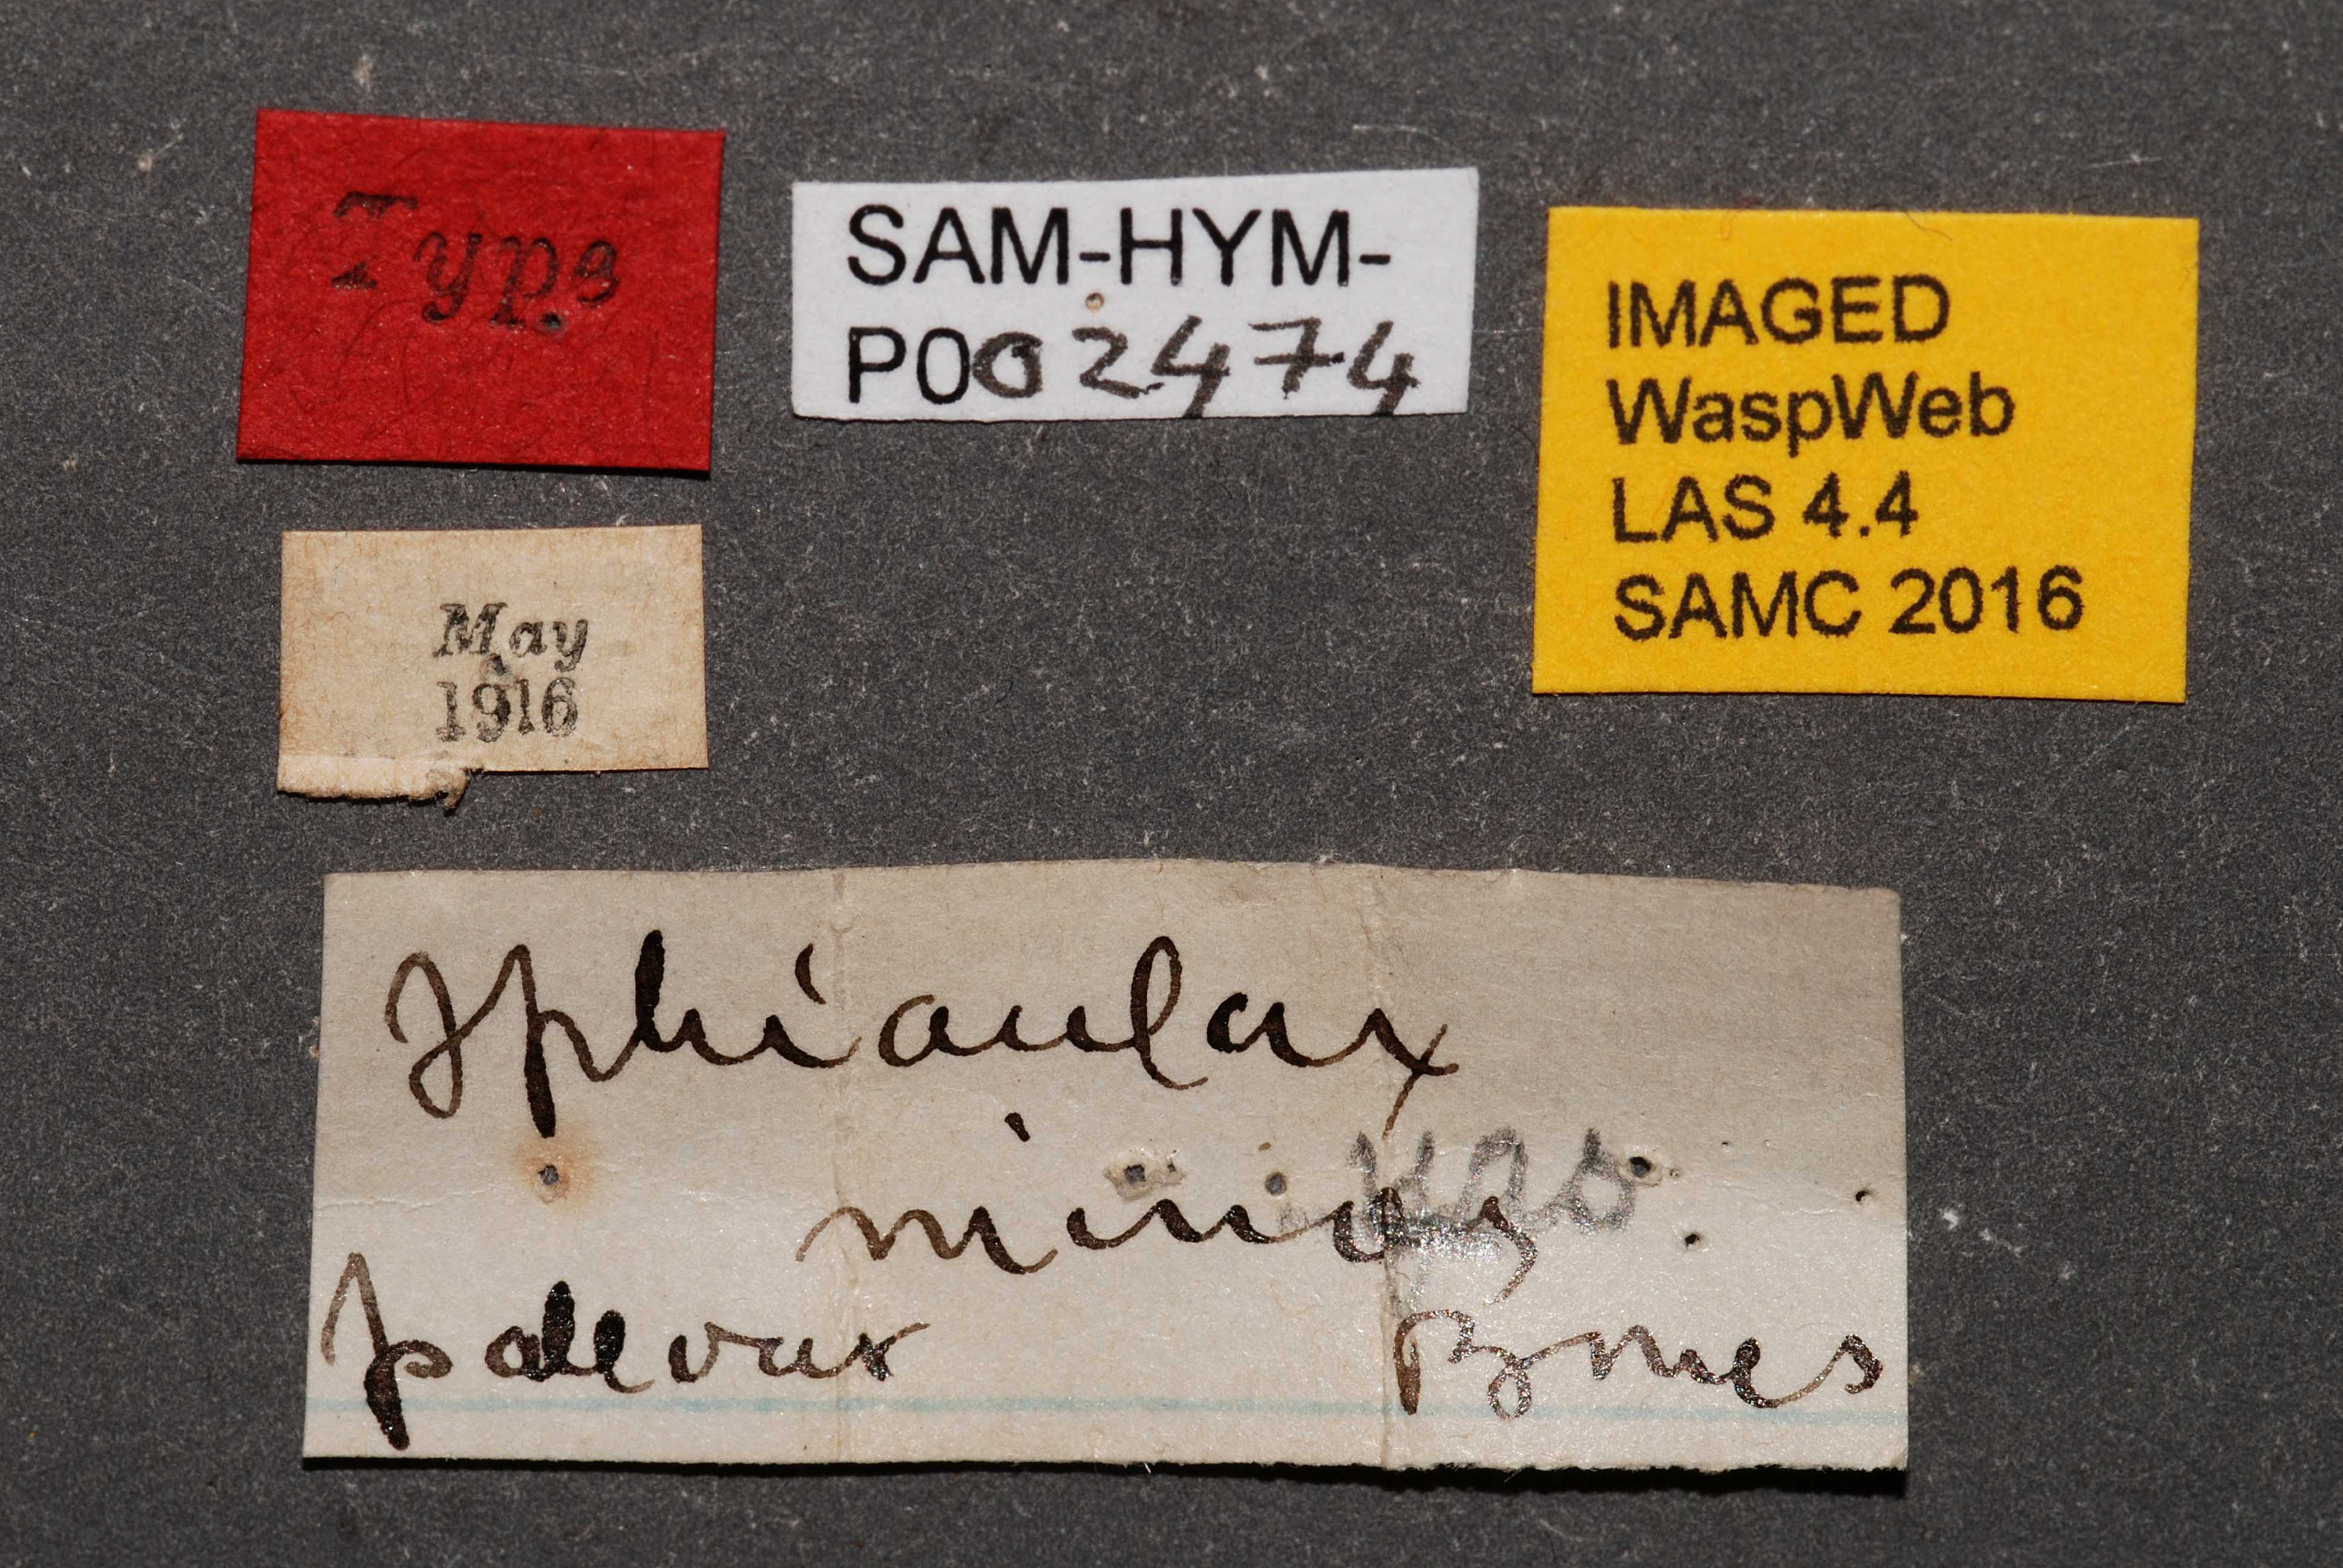 Type
SAM-HYM-
P002474
IMAGED
WaspWeb
LAS 4.4
SAMC 2016
May
1916
Iphiaulax
Brues